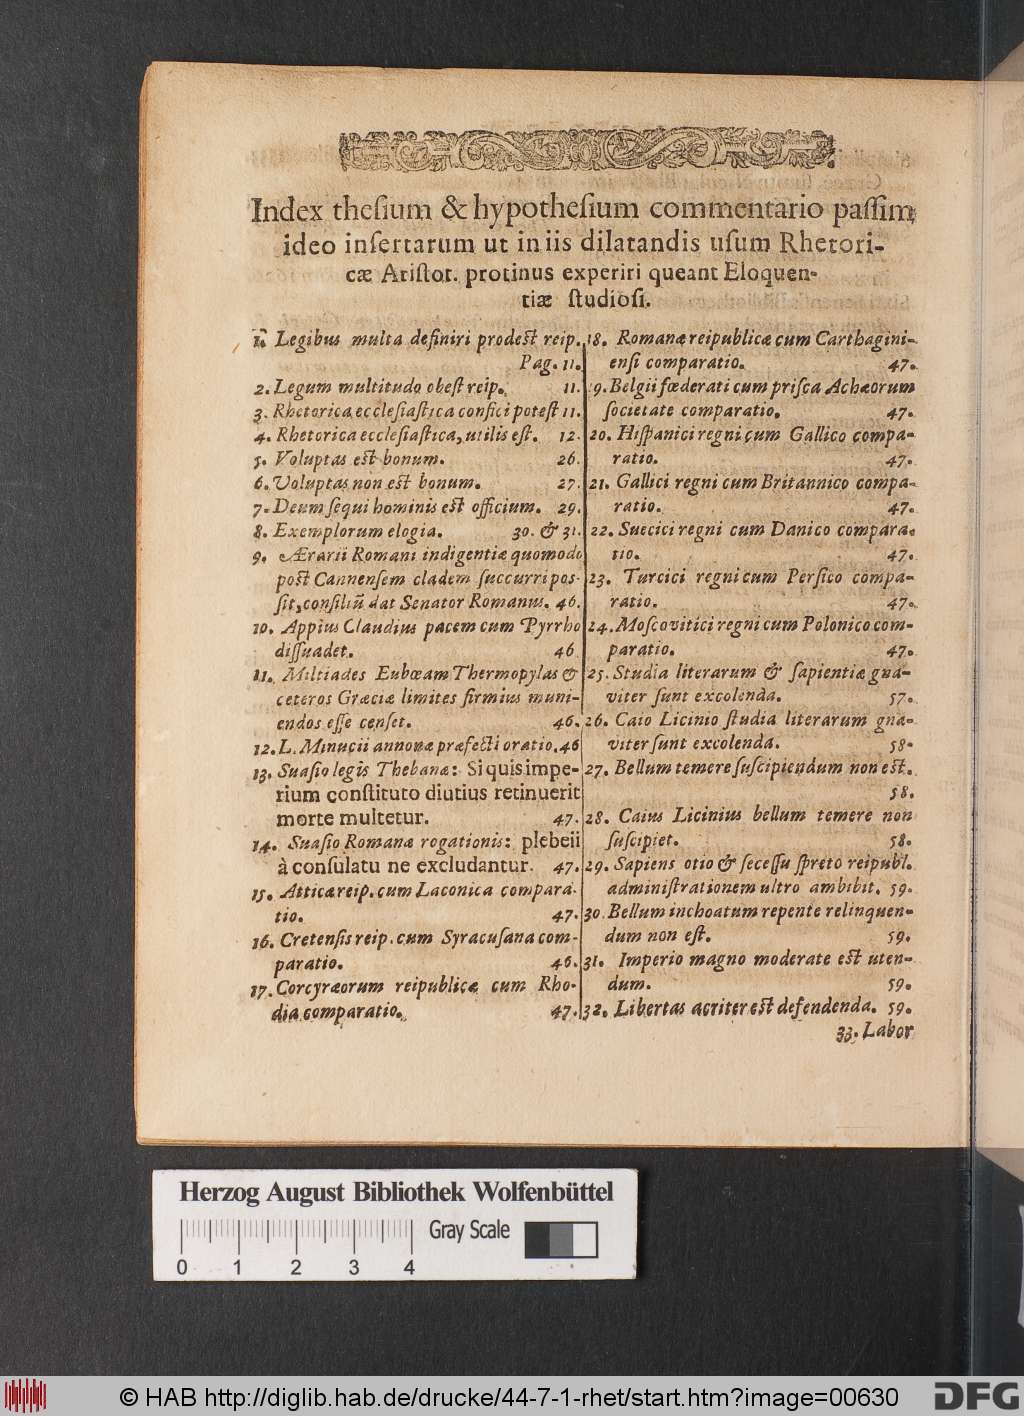 Index thesium & hypothesium commentario passim,
ideo insertarum ut in iis dilatandis usum Rhetori-
cæ Aristot. protinus experiri queant Eloquen-
tiæ studiosi.
Legibus multa definiri prodest reip.
Pag. 11.
2. Legum multitudo obest reip. 11.
3. Rhetorica ecclesiastica confici potest 11.
4. Rhetorica ecclesiastica, utilis est. 12.
5. Voluptas est bonum. 26.
6. Voluptas non est bonum. 27.
7. Deum sequi hominis est officium. 29.
8. Exemplorum elogia. 30. & 31.
9. Ærarii Romani indigentiæ quomodo
post Cannensem cladem succurri pos-
sit, consiliũ dat Senator Romanus. 46.
10. Appius Claudius pacem cum Pyrrho
dissuadet. 46
11. Miltiades Eubœam Thermopylas &
ceteros Græciæ limites firmius muni-
endos esse censet. 46.
12. L. Minucii annonæ præfecti oratio. 46
13. Suasio legis Thebanæ: Si quis impe-
rium constituto diutius retinuerit
morte multetur. 47.
14. Suasio Romanæ rogationis: plebeii
à consulatu ne excludantur. 47.
15. Atticæ reip. cum Laconica compara-
tio. 47.
16. Cretensis reip. cum Syracusana com-
paratio. 46.
17. Corcyræorum reipublicæ cum Rho-
dia comparatio. 47.
18. Romanæ reipublicæ cum Carthagini-
ensi comparatio. 47.
9. Belgii fœderati cum prisca Achæorum
societate comparatio. 47.
20. Hispanici regni cum Gallico compa-
ratio. 47.
21. Gallici regni cum Britannico compa-
ratio. 47.
22. Suecici regni cum Danico compara-
tio. 47.
23. Turcici regni cum Persico compa-
ratio. 47.
24. Moscovitici regni cum Polonico com-
paratio. 47.
25. Studia literarum & sapientiæ gna-
viter sunt excolenda. 57.
26. Caio Licinio studia literarum gna-
viter sunt excolenda. 58.
27. Bellum temere suscipiendum non est.
58.
28. Caius Licinius bellum temere non
suscipiet. 58.
29. Sapiens otio & secessu spreto reipubl.
administrationem ultro ambibit. 59.
30. Bellum inchoatum repente relinquen-
dum non est. 59.
31. Imperio magno moderate est uten-
dum. 59.
32. Libertas acriter est defendenda. 59.
33. Labor
Herzog August Bibliothek Wolfenbüttel
Gray Scale
0 1 2 3 4
© HAB http://diglib.hab.de/drucke/44-7-1-rhet/start.htm?image=00630
DFG